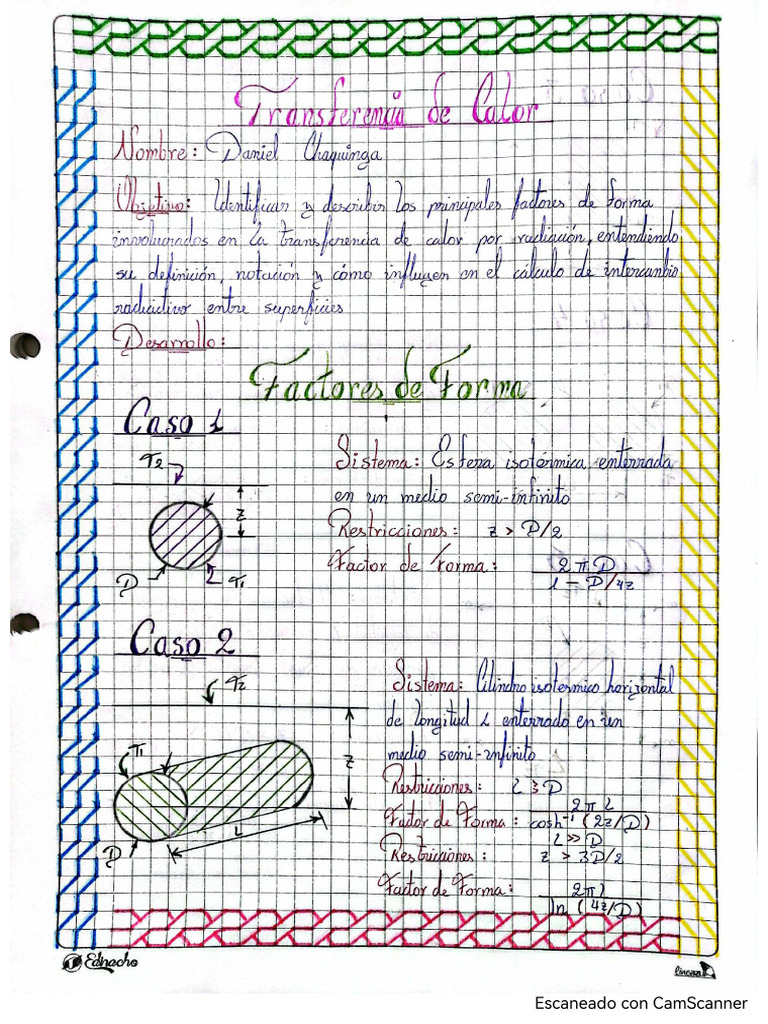 Transferencia de Calor
Nombre: Daniel Chaquinga
Objetivo: Identificar y describir los principales factores de forma
involucrados en la transferencia de calor por radiación, entendiendo
su definición, notación y cómo influyen en el cálculo de intercambio
radiactivo entre superficies
Desarrollo:
Factores de Forma
Caso 1
T2
Z
D
T1
Sistema: Esfera isotérmica enterrada
en un medio semi-infinito
Restricciones: z > D/2
Factor de Forma: 2πD
1 - D/4z
Caso 2
T2
T1
Z
L
D
Sistema: Cilindro isotermico horizontal
de longitud L enterrado en un
medio semi-infinito
Restricciones: L D
Factor de Forma: 2πL
cosh⁻¹ (2z/D)
L >> D
Restricciones: z > 3D/2
Factor de Forma: 2πL
ln (4z/D)
Ednacho
Escaneado con CamScanner